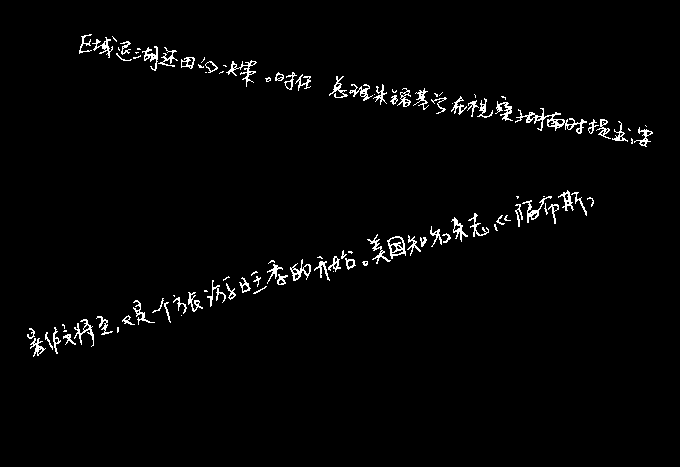 区域退湖还田的决策。时任 总理朱镕基曾在视察湖南时提出,要
暑假将至,又是一个旅游旺季的开始。美国知名杂志《福布斯》